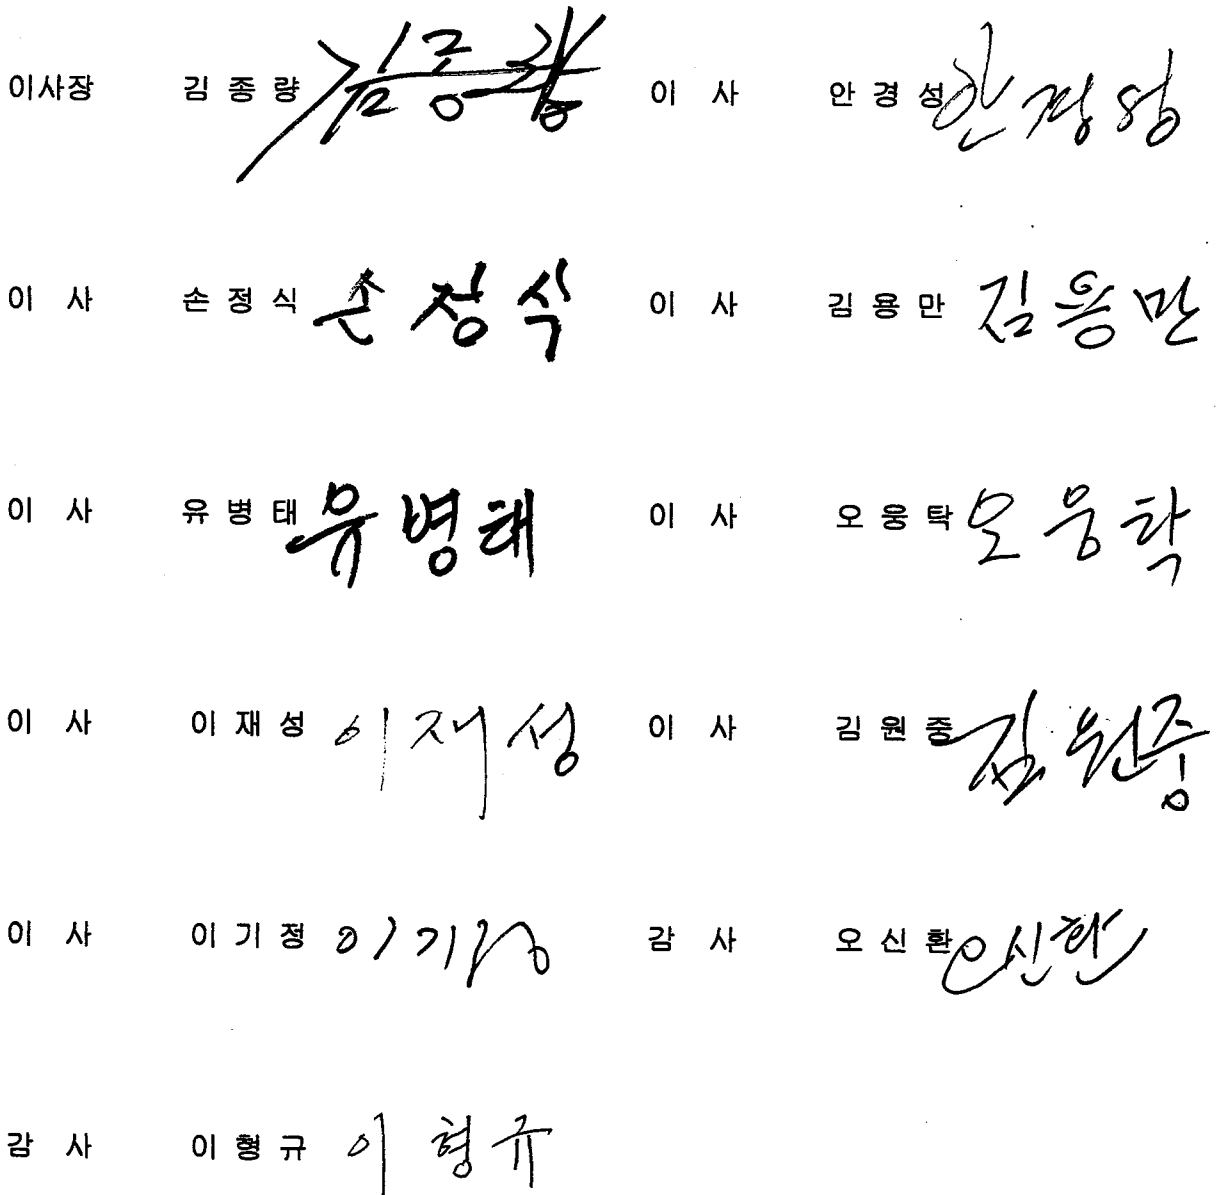 이사장 김종량 김종량 이 사 안경성 안경성
이 사 손정식 손정식 이 사 김용만 김용만
이 사 유병태 유병태 이 사 오웅탁 오웅탁
이 사 이재성 이재성 이 사 김원중 김원중
이 사 이기정 이기정 감 사 오신환 오신환
감 사 이형규 이형규